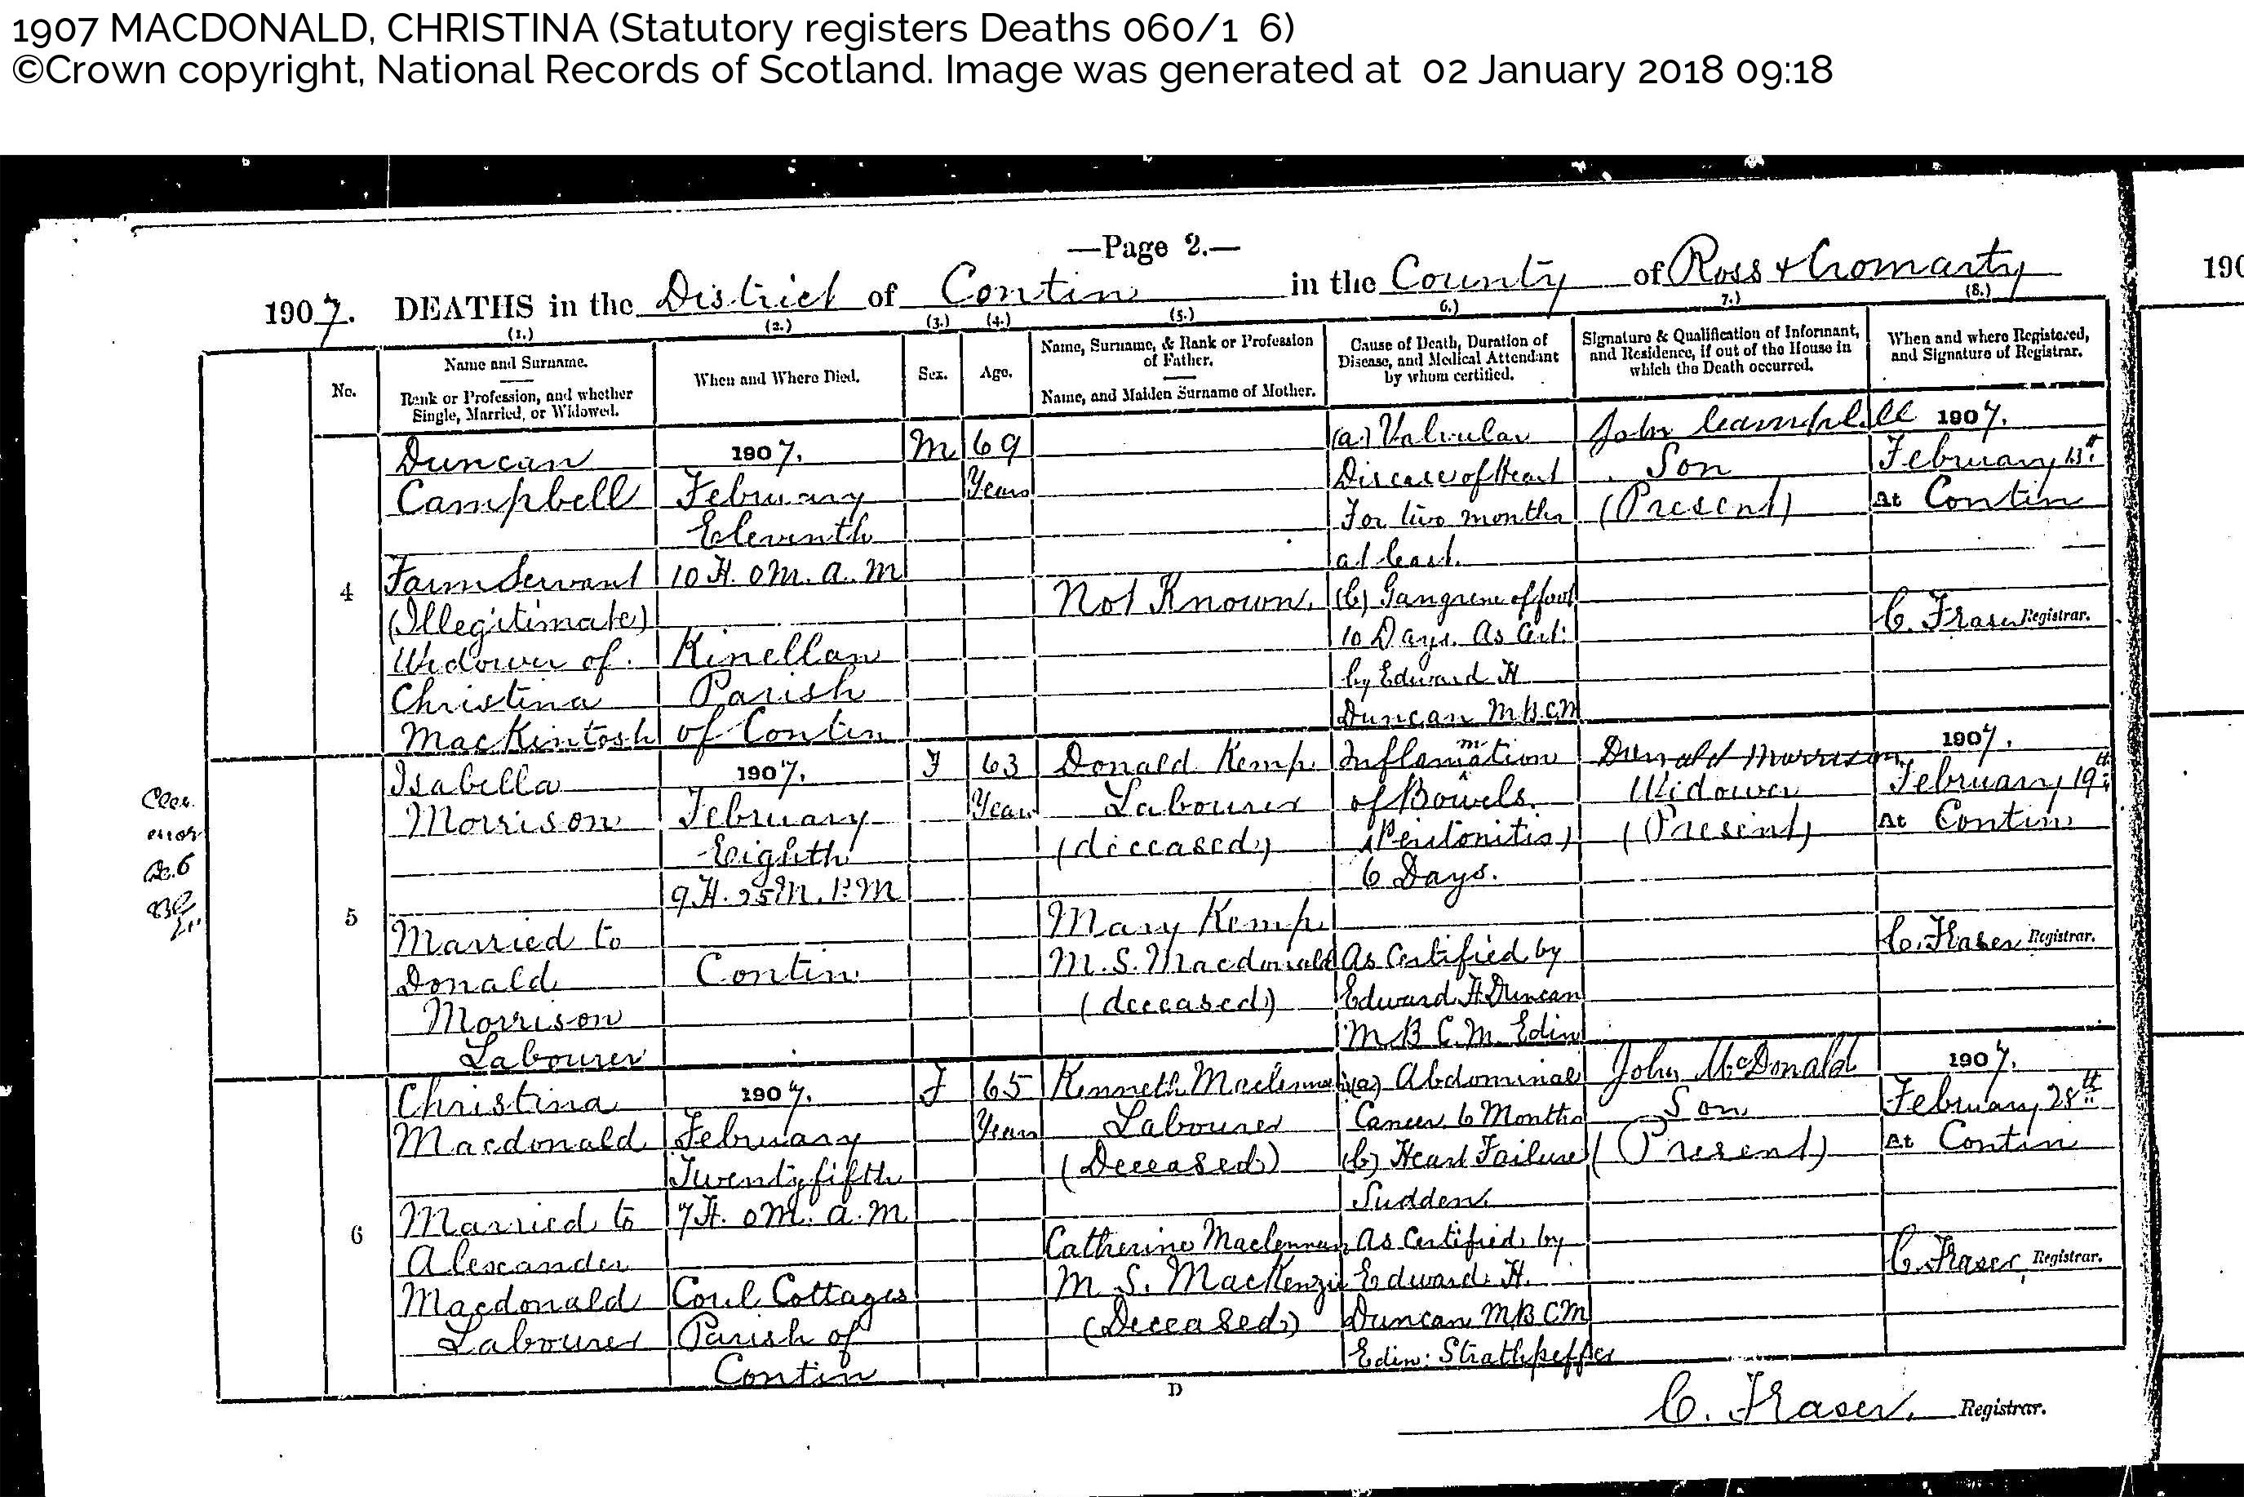 1907 MACDONALD, CHRISTINA (Statutory registers Deaths 060/1 6)
©Crown copyright, National Records of Scotland. Image was generated at 02 January 2018 09:18
—Page 2.—
190
1907. DEATHS in the District of Contin in the County of Ross & Cromarty
(1.) (2.) (3.) (4.) (5.) 6.) 7.) (8.)
No.
Name and Surname.
Rank or Profession, and whether
Single, Married, or Widowed.
When and Where Died.
Sex.
Age.
Name, Surname, & Rank or Profession
of Father.
Name, and Maiden Surname of Mother.
Cause of Death, Duration of
Disease, and Medical Attendant
by whom certified.
Signature & Qualification of Informant,
and Residence, if out of the House in
which the Death occurred.
When and where Registered,
and Signature of Registrar.
4
Duncan
Campbell
Farm Servant
(Illegitimate)
Widower of
Christina
MacKintosh
1907.
February
Eleventh
10 H. 0 M. A.M
Kinellan
Parish
of Contin
M
69
Years
Not Known.
(a) Valvular
Disease of Heart
For two months
at least.
(b) Gangrene of foot
10 Days. As Cert:
by Edward H
Duncan M.B.C.M
John Campbell
Son
(Present)
1907.
February 13th
At Contin
C. Fraser Registrar.
Cler.
error
5
Isabella
Morrison
Married to
Donald
Morrison
Labourer
1907.
February
Eighth
9 H. 25 M. P.M
Contin
F
63
Years
Donald Kemp
Labourer
(deceased)
Mary Kemp
M.S. Macdonald
(deceased)
Inflammation
of Bowels.
(Peritonitis)
6 Days.
As Certified by
Edward H Duncan
M B C.M. Edin
Donald Morrison
Widower
(Present)
1907.
February 19th
At Contin
C. Fraser Registrar.
6
Christina
Macdonald
Married to
Alexander
Macdonald
Labourer
1907.
February
Twenty fifth
7 H. 0 M. A.M
Coul Cottages
Parish of
Contin
F
65
Years
Kenneth Maclennan
Labourer
(Deceased)
Catherine Maclennan
M S. MacKenzie
(Deceased)
(a) Abdominal
Cancer 6 Months
(b) Heart Failure
Sudden.
As Certified by
Edward H.
Duncan M.B CM
Edin: Strathpeffer
John McDonald
Son
(Present)
1907.
February 28th
At Contin
C. Fraser Registrar.
D
C. Fraser. Registrar.